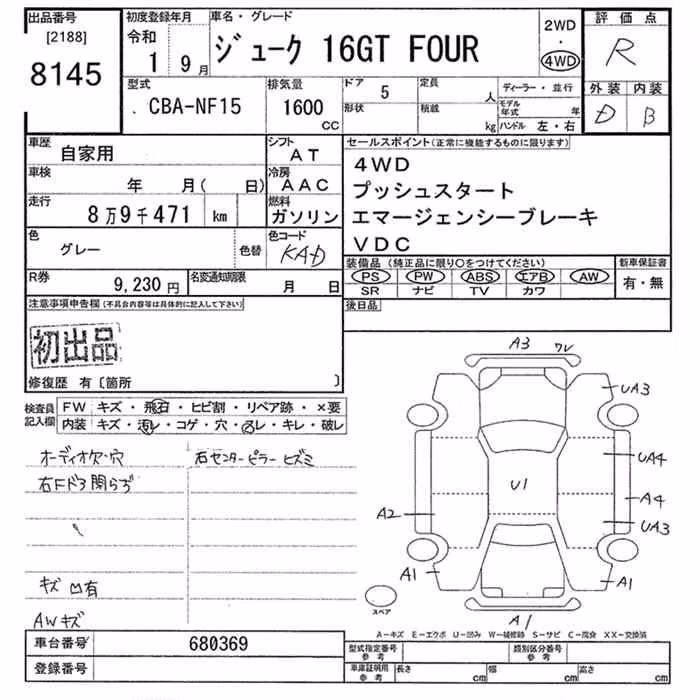 出品番号 [2188] 8145
初度登録年月 令和 1 9月
車名・グレード ジューク 16GT FOUR
2WD・4WD
評価点 R
型式 CBA-NF15
排気量 1600 CC
ドア 5
形状
定員 人
積載 kg
ディーラー・並行
モデル年式 年
ハンドル 左・右
外装 内装
D B
車歴 自家用
シフト AT
車検 年 月( 日)
冷房 AAC
走行 8万9千471 km
燃料 ガソリン
色 グレー 色替
色コード KAD
R券 9,230円
名変通知期限 月 日
セールスポイント(正常に機能するものに限ります)
4WD
プッシュスタート
エマージェンシーブレーキ
VDC
装備品(純正品に限り○をつけてください)
PS PW ABS エアB AW
SR ナビ TV カワ
新車保証書
有・無
後日品
注意事項申告欄(不具合内容等は具体的に記入して下さい)
初出品
修復歴 有〔箇所 〕
検査員記入欄
FW キズ・飛石・ヒビ割・リペア跡・×要
内装 キズ・汚レ・コゲ・穴・スレ・キレ・破レ
オーディオ欠・穴
右センターピラーヒズミ
右Fドア開らず
キズ凹有
AWキズ
A3 ワレ
UA3
UA4
U1
A2
A4
UA3
A1
A1
A1
スペア
A-キズ E-エクボ U-凹み W-補修跡 S-サビ C-腐食 XX-交換済
車台番号 680369
登録番号
型式指定番号 参考
類別区分番号 参考
車庫証明用 参考
長さ cm 幅 cm 高さ cm